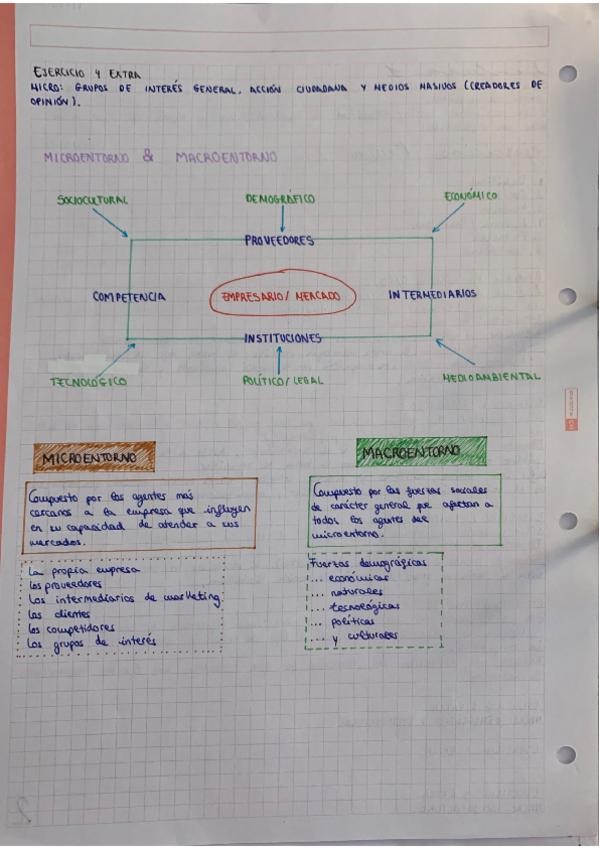 EJERCICIO 4 EXTRA
MICRO: GRUPOS DE INTERÉS GENERAL, ACCIÓN CIUDADANA Y MEDIOS MASIVOS (CREADORES DE
OPINIÓN).
MICROENTORNO & MACROENTORNO
SOCIOCULTURAL DEMOGRÁFICO ECONÓMICO
PROVEEDORES
COMPETENCIA EMPRESARIO/ MERCADO INTERMEDIARIOS
INSTITUCIONES
TECNOLÓGICO POLÍTICO/LEGAL MEDIOAMBIENTAL
MICROENTORNO
Compuesto por los agentes más
cercanos a la empresa que influyen
en su capacidad de atender a sus
mercados.
La propia empresa
Los proveedores
Los intermediarios de marketing
Los clientes
Los competidores
Los grupos de interés
MACROENTORNO
Compuesto por las fuerzas sociales
de carácter general que afectan a
todos los agentes del
microentorno.
Fuerzas demográficas
... económicas
... naturales
... tecnológicas
... políticas
... y culturales